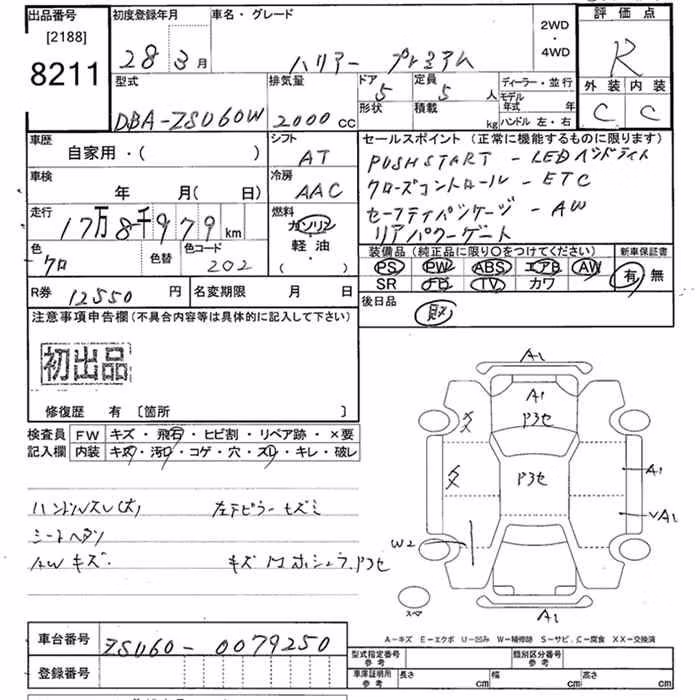 出品番号
[2188]
8211
初度登録年月
28年3月
車名・グレード
ハリアー プレミアム
2WD
・
4WD
評価点
R
外装 内装
C C
型式
DBA-ZSU60W
排気量
2000cc
ドア
5
形状
定員
5人
積載
kg
ディーラー・並行
モデル年式 年
ハンドル 左・右
車歴
自家用・( )
シフト
AT
セールスポイント (正常に機能するものに限ります)
PUSHSTART - LEDヘッドライト
クローズコントロール - ETC
セーフティパッケージ - AW
リアパワーゲート
車検
年 月( 日)
冷房
AAC
走行
17万8千979km
燃料
ガソリン
軽・油
( ・ )
色
クロ
色替
色コード
202
装備品 (純正品に限り○をつけてください)
PS PW ABS エアB AW
SR ナビ TV カワ
新車保証書
有 無
R券 12550円
名変期限 月 日
後日品
取
注意事項申告欄 (不具合内容等は具体的に記入して下さい)
初出品
修復歴 有 [箇所 ]
検査員記入欄
FW キズ・飛石・ヒビ割・リペア跡・×要
内装 キズ・汚れ・コゲ・穴・スレ・キレ・破レ
ハンドルスレ(大) 左下ピラーキズミ
シートヘタリ
AWキズ.
A1
A1
A1
VA1
W2
A1
スペア
A-キズ E-エクボ U-凹み W-補修跡 S-サビ.C-腐食 XX-交換済
車台番号 ZSU60-0079250
登録番号
型式指定番号 参考
類別区分番号 参考
車庫証明用 参考
長さ cm 幅 cm 高さ cm